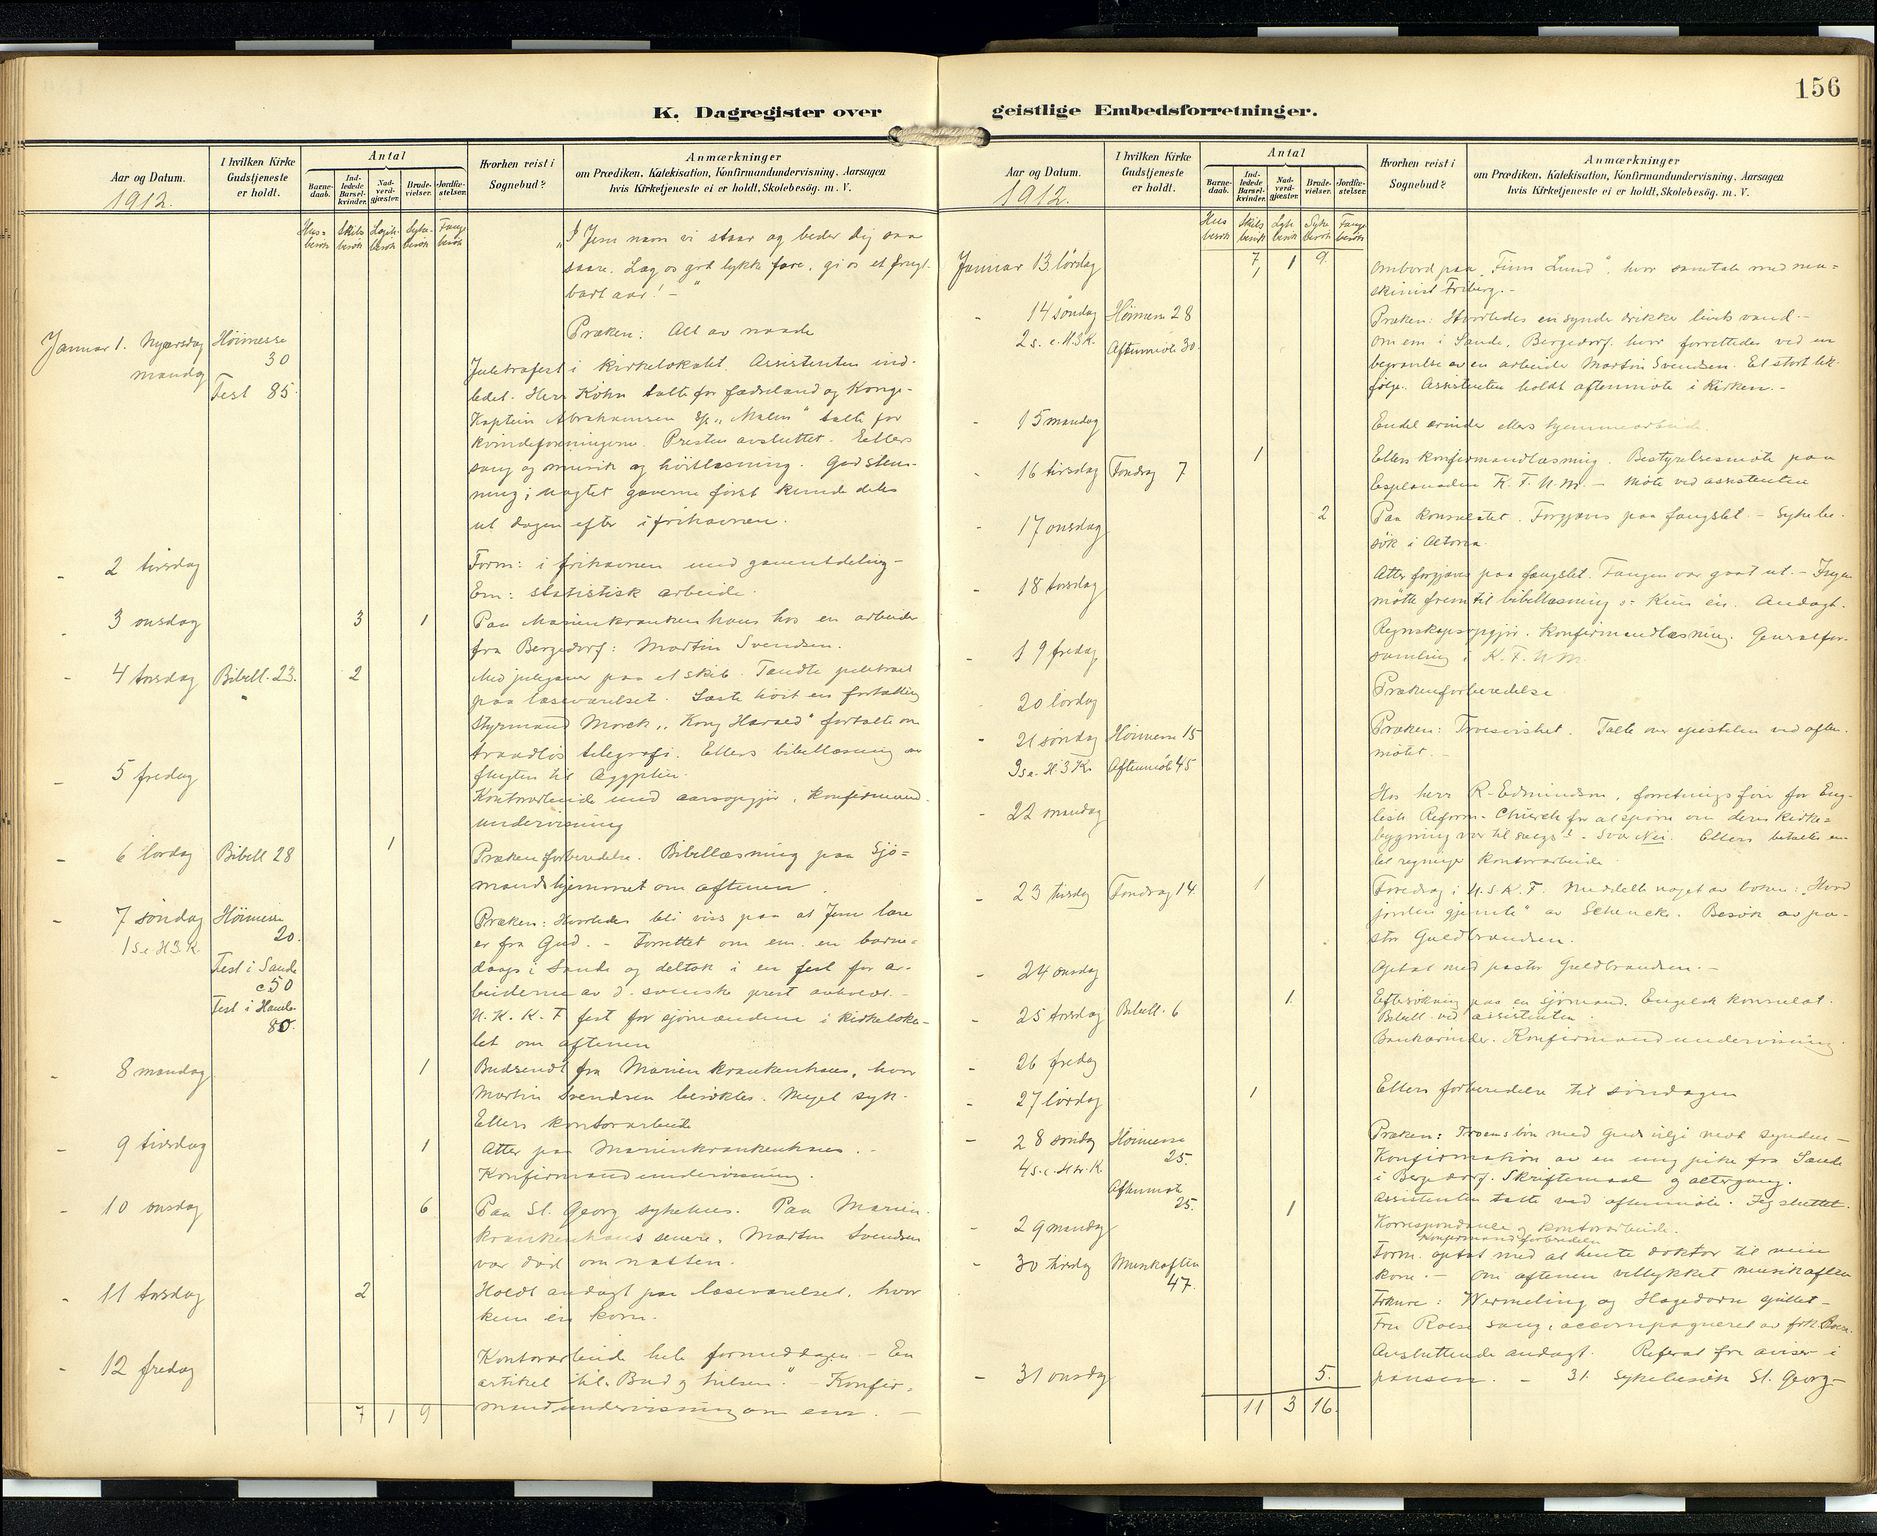 156
K. Dagregister over geistlige Embedsforretninger.
Aar og Datum.
1912.
I hvilken Kirke Gudstjeneste er holdt.
Antal
Barne-daab.
Ind-ledede Barsel-kvinder.
Nad-verd-gjæster.
Brude-vielser.
Jordfæ-stelser.
Hvorhen reist i Sognebud?
Anmærkninger
om Prædiken, Katekisation, Konfirmandundervisning, Aarsagen
hvis Kirketjeneste ei er holdt, Skolebesøg. m. V.
Hus-besøk
Skibs besøk
Logih besøk
Syke-besøk
Fange besøk
"I Jesu navn vi staar og beder dig saa
saare. Læg os god lykke fore, gi os et frugt-
bart aar! - "
Januar 1. Nyaarsdag mandag
Høimesse 30
Fest 85.
Præken: Alt av naade
Juletræfest i kirkelokalet. Assistenten ind-
ledet. Herr Kohn talte for fædreland og Konge.
Kaptein Abrahamsen s/s "Malm" talte for
kvindeforeningerne. Presten avsluttet. Ellers
sang og musik og høitlæsning. God stem-
ning; uagtet gaverne først kunde deles
ut dagen efter i frihavnen.
- 2 tirsdag
Form: i frihavnen med gaveutdeling -
Em: statistisk arbeide.
- 3 onsdag
3
1
Paa Marienkrankenhaus hos en arbeider
fra Bergedorf: Martin Svendsen.
- 4 torsdag
Bibell. 23.
2
Med julegaver paa et skib. Tændte juletræet
paa læseværelset. Læste høit en fortælling
Styrmand Morck, "Kong Harald" fortalte om
traadløs telegrafi. Ellers bibellæsning om
flugten til Ægypten.
- 5 fredag
Kontorarbeide med aarsopgjør, konfirmand-
undervisning
- 6 lørdag
Bibell 28
1
Prækenforberedelse. Bibellæsning paa Sjø-
mandshjemmet om aftenen.
- 7 søndag
1 S. e. H3K.
Høimesse 20.
Fest i Sande c50
Fest i Hamb. 80.
Præken: Hvorledes bli viss paa at Jesu lære
er fra Gud. - Forrettet om em. en barne-
daap i Sande og deltok i en fest for ar-
beiderne av d. svenske prest avholdt. -
U. K. K. F fest for sjømændene i kirkeloka-
let om aftenen
- 8 mandag
1
Budsendt fra Marienkrankenhaus, hvor
Martin Svendsen besøktes. Meget syk.
Ellers kontorarbeide
- 9 tirsdag
1
Atter paa Marienkrankenhaus. -
Konfirmandundervisning.
- 10 onsdag
6
Paa St. Georg sykehus. Paa Marien-
krankenhaus senere. Martin Svendsen
var død om natten.
- 11 torsdag
2
Holdt andagt paa læseværelset, hvor
kun en kom.
- 12 fredag
Kontorarbeide hele formiddagen. - En
artikel til "Bud og hilsen." - Konfir-
mandundervisning om em. -
7 1 9
Aar og Datum.
1912.
I hvilken Kirke Gudstjeneste er holdt.
Antal
Barne-daab.
Ind-ledede Barsel-kvinder.
Nad-verd-gjæster.
Brude-vielser.
Jordfæ-stelser.
Hvorhen reist i Sognebud?
Anmærkninger
om Prædiken, Katekisation, Konfirmandundervisning, Aarsagen
hvis Kirketjeneste ei er holdt, Skolebesøg. m. V.
Hus besøk
Skibs besøk
Logh besøk
Syke besøk
Fange besøk
7 1 9
Januar 13 lørdag
1
Ombord paa "Finn Lund", hvor samtale med ma-
skinist Friberg. -
- 14 søndag
2 s. e. H.3K.
Høimesse 28
Aftenmøte 30.
Præken: Hvorledes en synder drikker livets vand. -
Om em i Sande, Bergedorf, hvor forrettedes ved en
begravelse av en arbeider Martin Svendsen. Et stort lik-
følge. Assistenten holdt aftenmøte i kirken. -
- 15 mandag
Endel ærinder ellers hjemmearbeide.
- 16 tirsdag
Foredrag 7
1
Ellers konfirmandlæsning. Bestyrelsesmøte paa
Esplanaden K. F. U. M. - Møte ved assistenten
- 17 onsdag
2
Paa konsulatet. Forgjæves paa fængslet - Sykebe-
søk i Altona.
- 18 torsdag
Atter forgjæves paa fængslet. Fangen var gaat ut. - Ingen
møtte frem til bibellæsning o: Kun én. Andagt.
- 19 fredag
Regnskapsopgjør. Konfirmandlæsning. Generalfor-
samling i K. F. U. M
- 20 lørdag
Prækenforberedelse
- 21 søndag
3 s. e. H3K.
Høimesse 15
Aftenmøte 45
Præken: Troesvished. Talte over epistelen ved aften-
møtet -
- 22 mandag
Hos herr R. Edmindson, forretningsfører for Eng-
lish Reform. Church for at spørre om deres kirke-
bygning var til salgs? - Svar Nei. Ellers betaltes en
del regninger kontorarbeide.
- 23 tirsdag
Foredrag 14.
1
Foredrag i U. S. K. F. Meddelte noget av boken: "Hvad
jorden gjemte" av Schenck. Besøk av pa-
stor Guldbrandsen.
- 24 onsdag
Optat med pastor Guldbrandsen. -
- 25 torsdag
Bibell. 6
1.
Eftersøkning paa en sjømand. Engelsk konsulat.
Bibell. ved assistenten.
- 26 fredag
Bankærinder. Konfirmandundervisning.
- 27 lørdag
1
Ellers forberedelse til søndagen
- 28 søndag
4 s. e. H tr. K.
Høimesse 25.
Aftenmøte 25.
Præken: Troens bøn med Guds vilje mot synden -
Konfirmation av en ung pike fra Sande
i Bergedorf. Skriftemaal og altergang.
Assistenten talte ved aftenmøte. Jeg sluttet.
- 29 mandag
1
Korrespondanse og kontorarbeide.
Konfirmandforberedelse
- 30 tirsdag
Musikaften 47.
Form. optat med at hente doktor til min
kone. - Om aftenen vellykket musikaften
Frøknre: Wermeling og Hagedorn spillet -
Fru Roese sang, accompagneret av frk. Roese.
Avsluttende andagt. Referat fra aviser i
pausen. - 31. Sykebesøk St. Georg -
- 31 onsdag
5.
11 3 16.